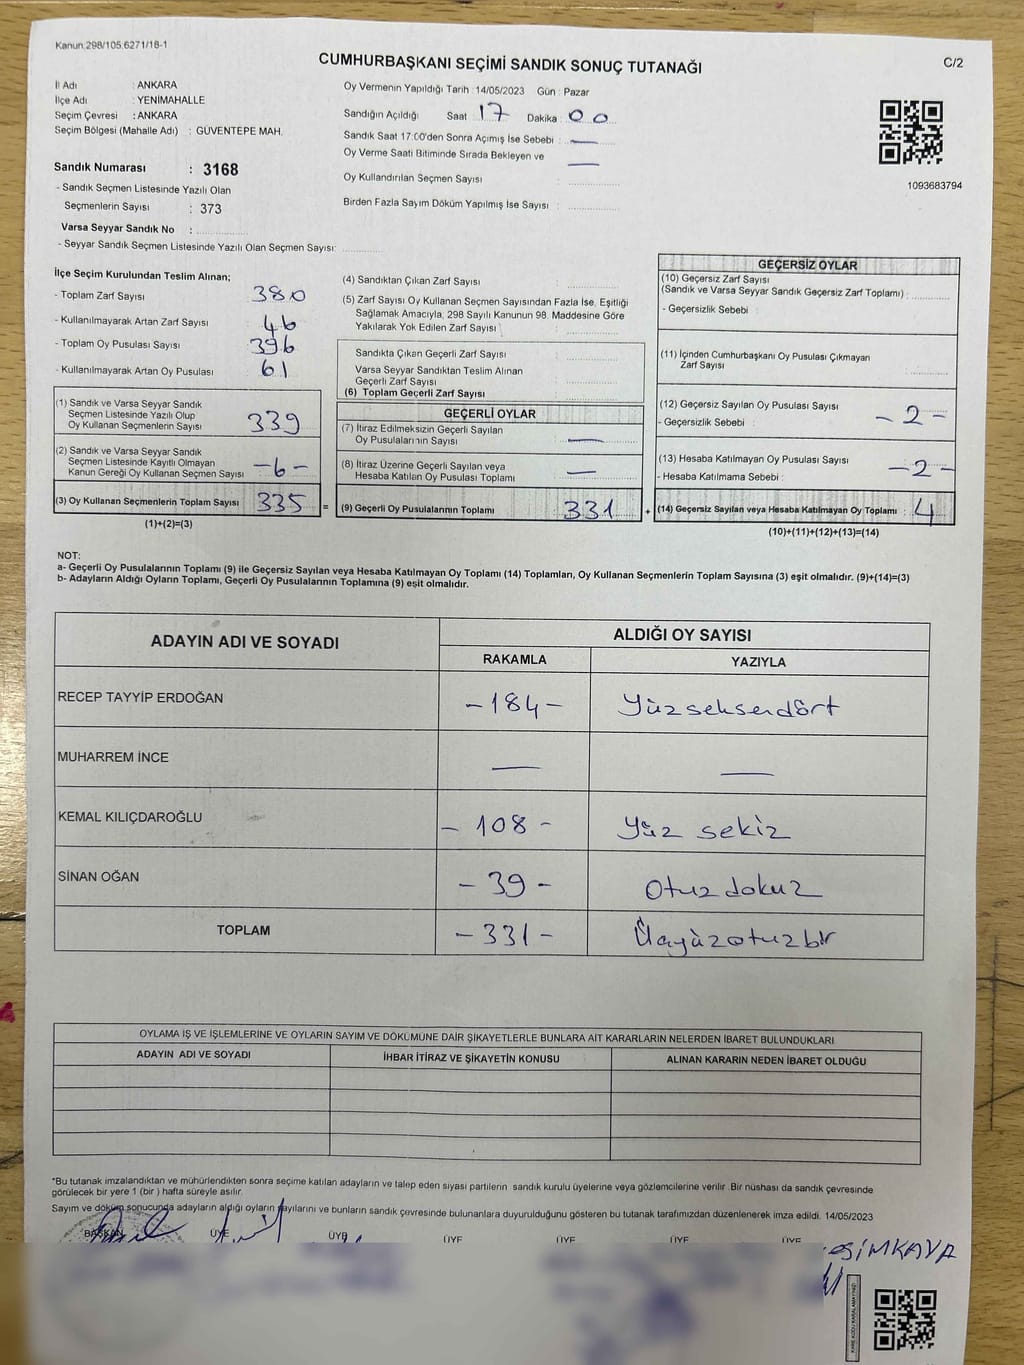 Kanun:298/105,6271/18-1
CUMHURBAŞKANI SEÇİMİ SANDIK SONUÇ TUTANAĞI
C/2
İl Adı : ANKARA
İlçe Adı : YENİMAHALLE
Seçim Çevresi : ANKARA
Seçim Bölgesi (Mahalle Adı) : GÜVENTEPE MAH.
Oy Vermenin Yapıldığı Tarih : 14/05/2023 Gün : Pazar
Sandığın Açıldığı Saat 17 Dakika : 00
Sandık Saat 17:00'den Sonra Açımış İse Sebebi : —
Oy Verme Saati Bitiminde Sırada Bekleyen ve —
Oy Kullandırılan Seçmen Sayısı :
Birden Fazla Sayım Döküm Yapılmış İse Sayısı :
1093683794
Sandık Numarası : 3168
- Sandık Seçmen Listesinde Yazılı Olan
Seçmenlerin Sayısı : 373
Varsa Seyyar Sandık No :
- Seyyar Sandık Seçmen Listesinde Yazılı Olan Seçmen Sayısı:
İlçe Seçim Kurulundan Teslim Alınan;
- Toplam Zarf Sayısı 380
- Kullanılmayarak Artan Zarf Sayısı : 46
- Toplam Oy Pusulası Sayısı 396
- Kullanılmayarak Artan Oy Pusulası : 61
(1) Sandık ve Varsa Seyyar Sandık
Seçmen Listesinde Yazılı Olup
Oy Kullanan Seçmenlerin Sayısı : 339
(2) Sandık ve Varsa Seyyar Sandık
Seçmen Listesinde Kayıtlı Olmayan
Kanun Gereği Oy Kullanan Seçmen Sayısı -6-
(3) Oy Kullanan Seçmenlerin Toplam Sayısı 335 =
(1)+(2)=(3)
(4) Sandıktan Çıkan Zarf Sayısı :
(5) Zarf Sayısı Oy Kullanan Seçmen Sayısından Fazla İse, Eşitliği
Sağlamak Amacıyla, 298 Sayılı Kanunun 98. Maddesine Göre
Yakılarak Yok Edilen Zarf Sayısı :
Sandıkta Çıkan Geçerli Zarf Sayısı :
Varsa Seyyar Sandıktan Teslim Alınan
Geçerli Zarf Sayısı :
(6) Toplam Geçerli Zarf Sayısı :
GEÇERLİ OYLAR
(7) İtiraz Edilmeksizin Geçerli Sayılan
Oy Pusulalarının Sayısı : —
(8) İtiraz Üzerine Geçerli Sayılan veya
Hesaba Katılan Oy Pusulası Toplamı : —
(9) Geçerli Oy Pusulalarının Toplamı : 331 +
GEÇERSİZ OYLAR
(10) Geçersiz Zarf Sayısı
(Sandık ve Varsa Seyyar Sandık Geçersiz Zarf Toplamı) :
- Geçersizlik Sebebi :
(11) İçinden Cumhurbaşkanı Oy Pusulası Çıkmayan
Zarf Sayısı :
(12) Geçersiz Sayılan Oy Pusulası Sayısı : -2-
- Geçersizlik Sebebi :
(13) Hesaba Katılmayan Oy Pusulası Sayısı : -2-
- Hesaba Katılmama Sebebi :
(14) Geçersiz Sayılan veya Hesaba Katılmayan Oy Toplamı : 4
(10)+(11)+(12)+(13)=(14)
NOT:
a- Geçerli Oy Pusulalarının Toplamı (9) ile Geçersiz Sayılan veya Hesaba Katılmayan Oy Toplamı (14) Toplamları, Oy Kullanan Seçmenlerin Toplam Sayısına (3) eşit olmalıdır. (9)+(14)=(3)
b- Adayların Aldığı Oyların Toplamı, Geçerli Oy Pusulalarının Toplamına (9) eşit olmalıdır.
ADAYIN ADI VE SOYADI ALDIĞI OY SAYISI
RAKAMLA YAZIYLA
RECEP TAYYİP ERDOĞAN -184- Yüzseksendört
MUHARREM İNCE — —
KEMAL KILIÇDAROĞLU -108- Yüz sekiz
SİNAN OĞAN -39- Otuz dokuz
TOPLAM -331- Üçyüzotuzbir
OYLAMA İŞ VE İŞLEMLERİNE VE OYLARIN SAYIM VE DÖKÜMÜNE DAİR ŞİKAYETLERLE BUNLARA AİT KARARLARIN NELERDEN İBARET BULUNDUKLARI
ADAYIN ADI VE SOYADI İHBAR İTİRAZ VE ŞİKAYETİN KONUSU ALINAN KARARIN NEDEN İBARET OLDUĞU
*Bu tutanak imzalandıktan ve mühürlendikten sonra seçime katılan adayların ve talep eden siyasi partilerin sandık kurulu üyelerine veya gözlemcilerine verilir. Bir nüshası da sandık çevresinde
görülecek bir yere 1 (bir ) hafta süreyle asılır.
Sayım ve döküm sonucunda adayların aldığı oyların sayılarını ve bunların sandık çevresinde bulunanlara duyurulduğunu gösteren bu tutanak tarafımızdan düzenlenerek imza edildi. 14/05/2023
BAŞKAN ÜYE ÜYE ÜYE ÜYE ÜYE ÜYE